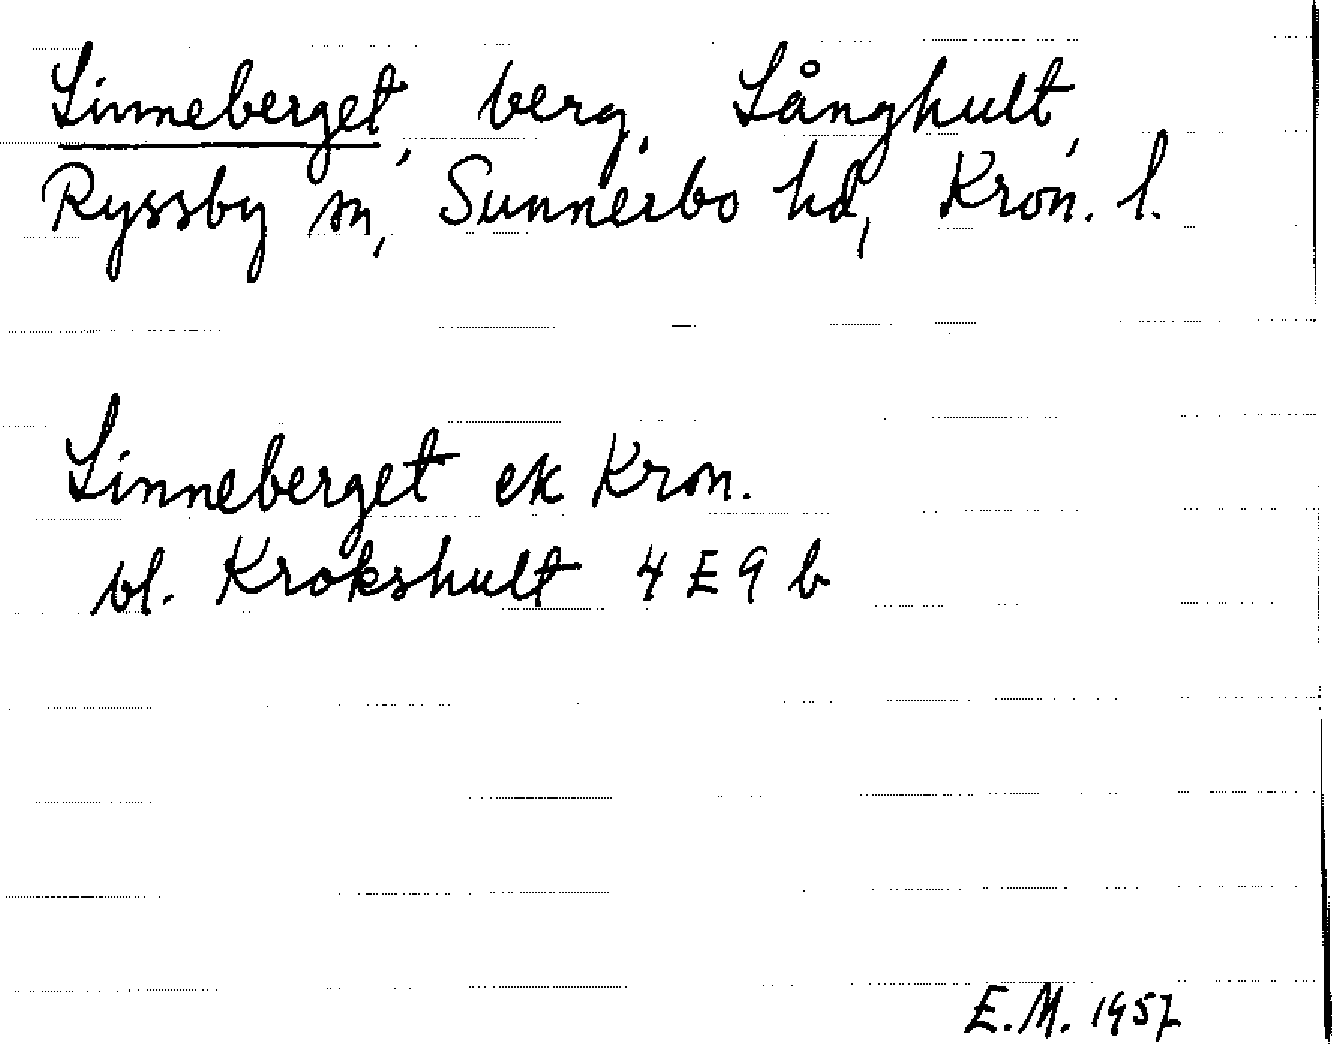 Linneberget, berg, Långhult,
Ryssby sn, Sunnerbo hd, Kron. l.
Linneberget ek Kron.
bl. Krokshult 4 E 9 b
E.M. 1957